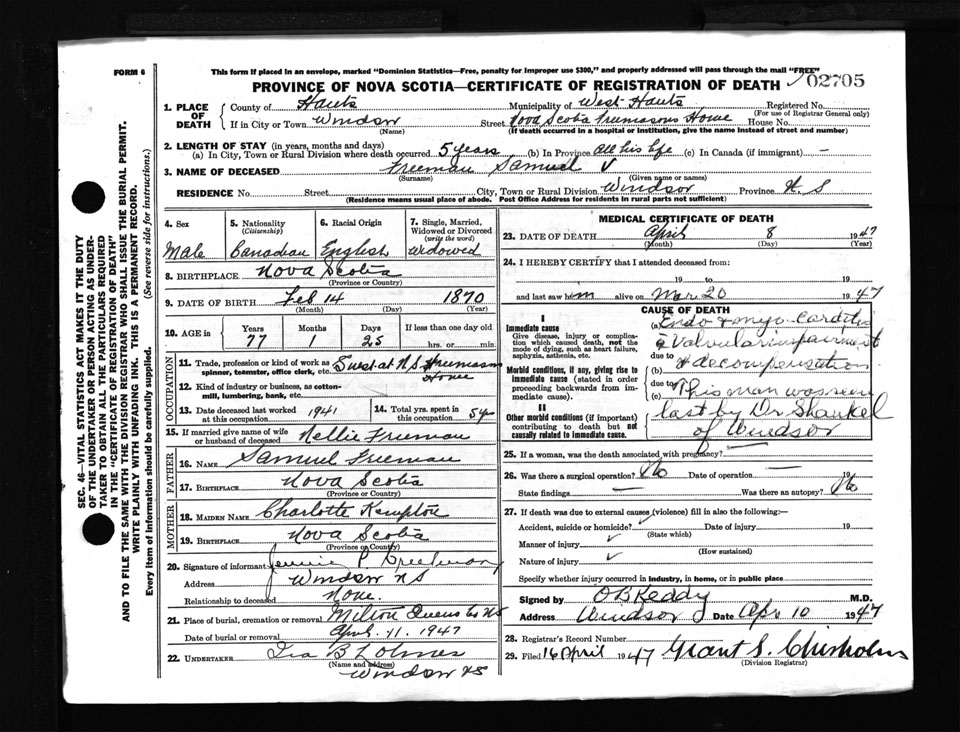 FORM 6
This form if placed in an envelope, marked "Dominion Statistics—Free, penalty for improper use $300," and properly addressed will pass through the mail "FREE"
PROVINCE OF NOVA SCOTIA—CERTIFICATE OF REGISTRATION OF DEATH 02705
1. PLACE OF DEATH
County of Hants Municipality of West Hants Registered No.
(For use of Registrar General only)
If in City or Town Windsor Street Nova Scotia Freemasons Home House No.
(Name) (If death occurred in a hospital or institution, give the name instead of street and number)
2. LENGTH OF STAY (in years, months and days)
(a) In City, Town or Rural Division where death occurred 5 years (b) In Province All his life (c) In Canada (if immigrant) —
3. NAME OF DECEASED Freeman Samuel V
(Surname) (Given name or names)
RESIDENCE No. Street City, Town or Rural Division Windsor Province N S
(Residence means usual place of abode. Post Office Address for residents in rural parts not sufficient)
4. Sex
Male
5. Nationality
(Citizenship)
Canadian
6. Racial Origin
English
7. Single, Married, Widowed or Divorced
(write the word)
Widowed
8. BIRTHPLACE Nova Scotia
(Province or Country)
9. DATE OF BIRTH Feb 14 1870
(Month) (Day) (Year)
10. AGE in Years Months Days If less than one day old
77 1 25 hrs. or min.
OCCUPATION
11. Trade, profession or kind of work as spinner, teamster, office clerk, etc. Supt. at N S Freemason Home
12. Kind of industry or business, as cotton-mill, lumbering, bank, etc.
13. Date deceased last worked at this occupation 1941
14. Total yrs. spent in this occupation 54
15. If married give name of wife or husband of deceased Nellie Freeman
FATHER
16. NAME Samuel Freeman
17. BIRTHPLACE Nova Scotia
(Province or Country)
MOTHER
18. MAIDEN NAME Charlotte Kempton
19. BIRTHPLACE Nova Scotia
(Province or Country)
20. Signature of informant Jennie P. Creelman
Address Windsor NS
Relationship to deceased None.
21. Place of burial, cremation or removal Milton Queens Co NS
Date of burial or removal April 11. 1947
22. UNDERTAKER Ira B Lohnes
(Name and address)
Windsor NS
MEDICAL CERTIFICATE OF DEATH
23. DATE OF DEATH April 8 1947
(Month) (Day) (Year)
24. I HEREBY CERTIFY that I attended deceased from:
19 to 19
and last saw him alive on Mar. 20 1947
CAUSE OF DEATH
I
Immediate cause
Give disease, injury or complication which caused death, not the mode of dying, such as heart failure, asphyxia, asthenia, etc.
Morbid conditions, if any, giving rise to immediate cause (stated in order proceeding backwards from immediate cause).
II
Other morbid conditions (if important) contributing to death but not causally related to immediate cause.
(a) Endo & myo-carditis
Valvular impairment
due to & decompensation
(b)
due to
(c) This man was seen
last by Dr Shankel
of Windsor
25. If a woman, was the death associated with pregnancy? —
26. Was there a surgical operation? No Date of operation — 19
State findings — Was there an autopsy? No
27. If death was due to external causes (violence) fill in also the following:—
Accident, suicide or homicide? Date of injury 19
(State which)
Manner of injury
(How sustained)
Nature of injury
Specify whether injury occurred in industry, in home, or in public place
Signed by O B Keddy M.D.
Address Windsor Date Apr 10 1947
28. Registrar's Record Number
29. Filed 16 April 1947 Grant S. Chisholm
(Division Registrar)
SEC. 46—VITAL STATISTICS ACT MAKES IT THE DUTY
OF THE UNDERTAKER OR PERSON ACTING AS UNDER-
TAKER TO OBTAIN ALL THE PARTICULARS REQUIRED
IN THE "CERTIFICATE OF REGISTRATION OF DEATH"
AND TO FILE THE SAME WITH THE DIVISION REGISTRAR WHO SHALL ISSUE THE BURIAL PERMIT.
WRITE PLAINLY WITH UNFADING INK. THIS IS A PERMANENT RECORD.
Every item of information should be carefully supplied. (See reverse side for instructions.)